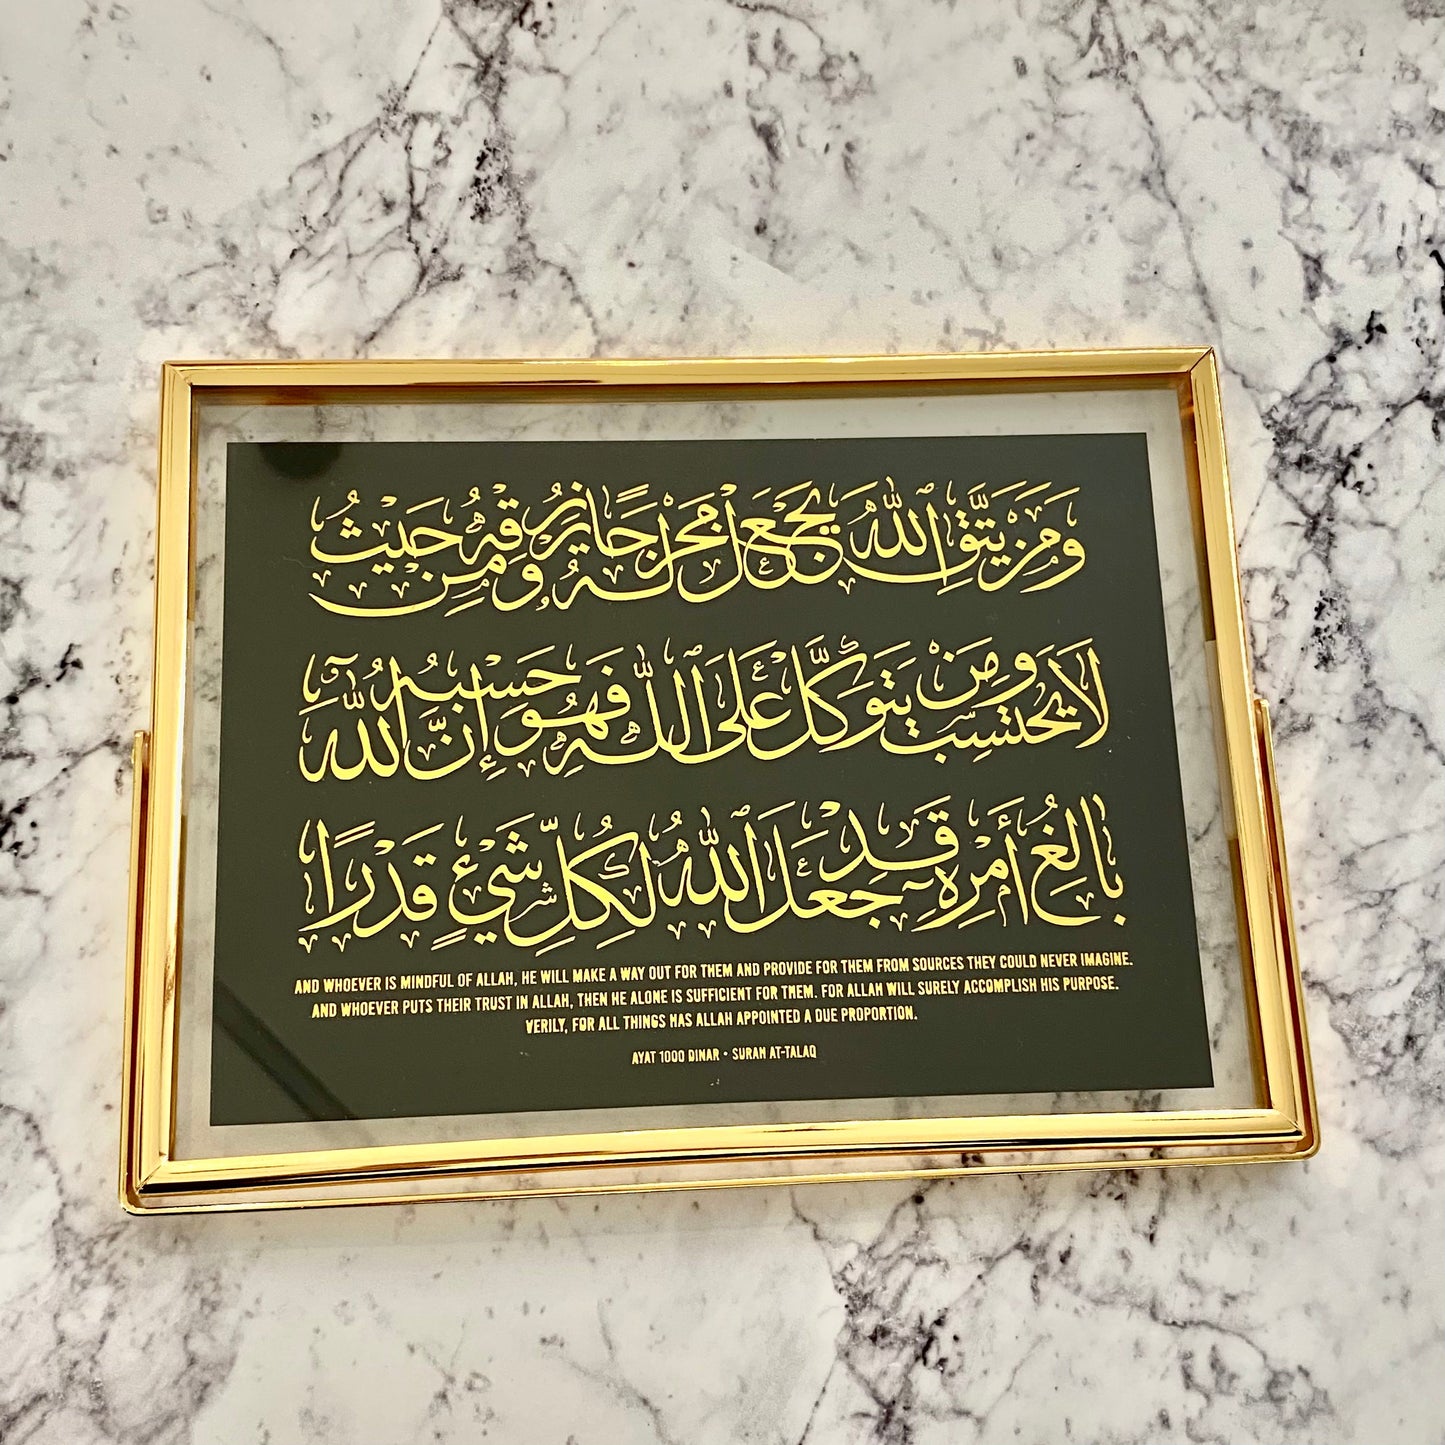 وَمَنْ يَتَّقِ اللَّهَ يَجْعَلْ لَهُ مَخْرَجًا وَيَرْزُقْهُ مِنْ حَيْثُ
لَا يَحْتَسِبُ وَمَنْ يَتَوَكَّلْ عَلَى اللَّهِ فَهُوَ حَسْبُهُ إِنَّ اللَّهَ
بَالِغُ أَمْرِهِ قَدْ جَعَلَ اللَّهُ لِكُلِّ شَيْءٍ قَدْرًا
AND WHOEVER IS MINDFUL OF ALLAH, HE WILL MAKE A WAY OUT FOR THEM AND PROVIDE FOR THEM FROM SOURCES THEY COULD NEVER IMAGINE.
AND WHOEVER PUTS THEIR TRUST IN ALLAH, THEN HE ALONE IS SUFFICIENT FOR THEM. FOR ALLAH WILL SURELY ACCOMPLISH HIS PURPOSE.
VERILY, FOR ALL THINGS HAS ALLAH APPOINTED A DUE PROPORTION.
AYAT 1000 DINAR • SURAH AT-TALAQ